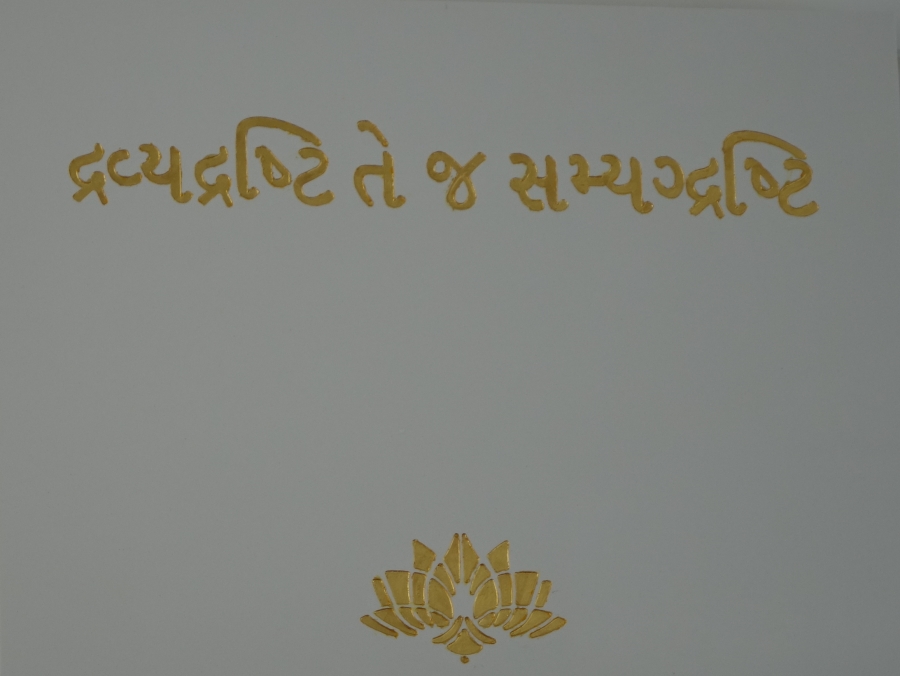 દ્રવ્યદ્રષ્ટિ તે જ સમ્યગ્દ્રષ્ટિ